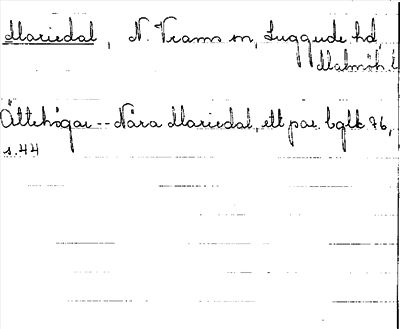 Mariedal, N. Vrams sn, Luggude hd,
Malmöh. l.
Ättehögar -- Nära Mariedal, ett par. bglb 76,
s. 44